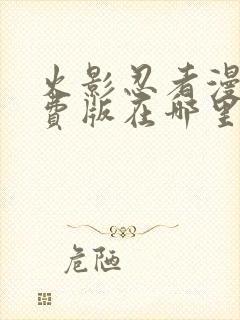 火影忍者漫
费版在哪里
危陋